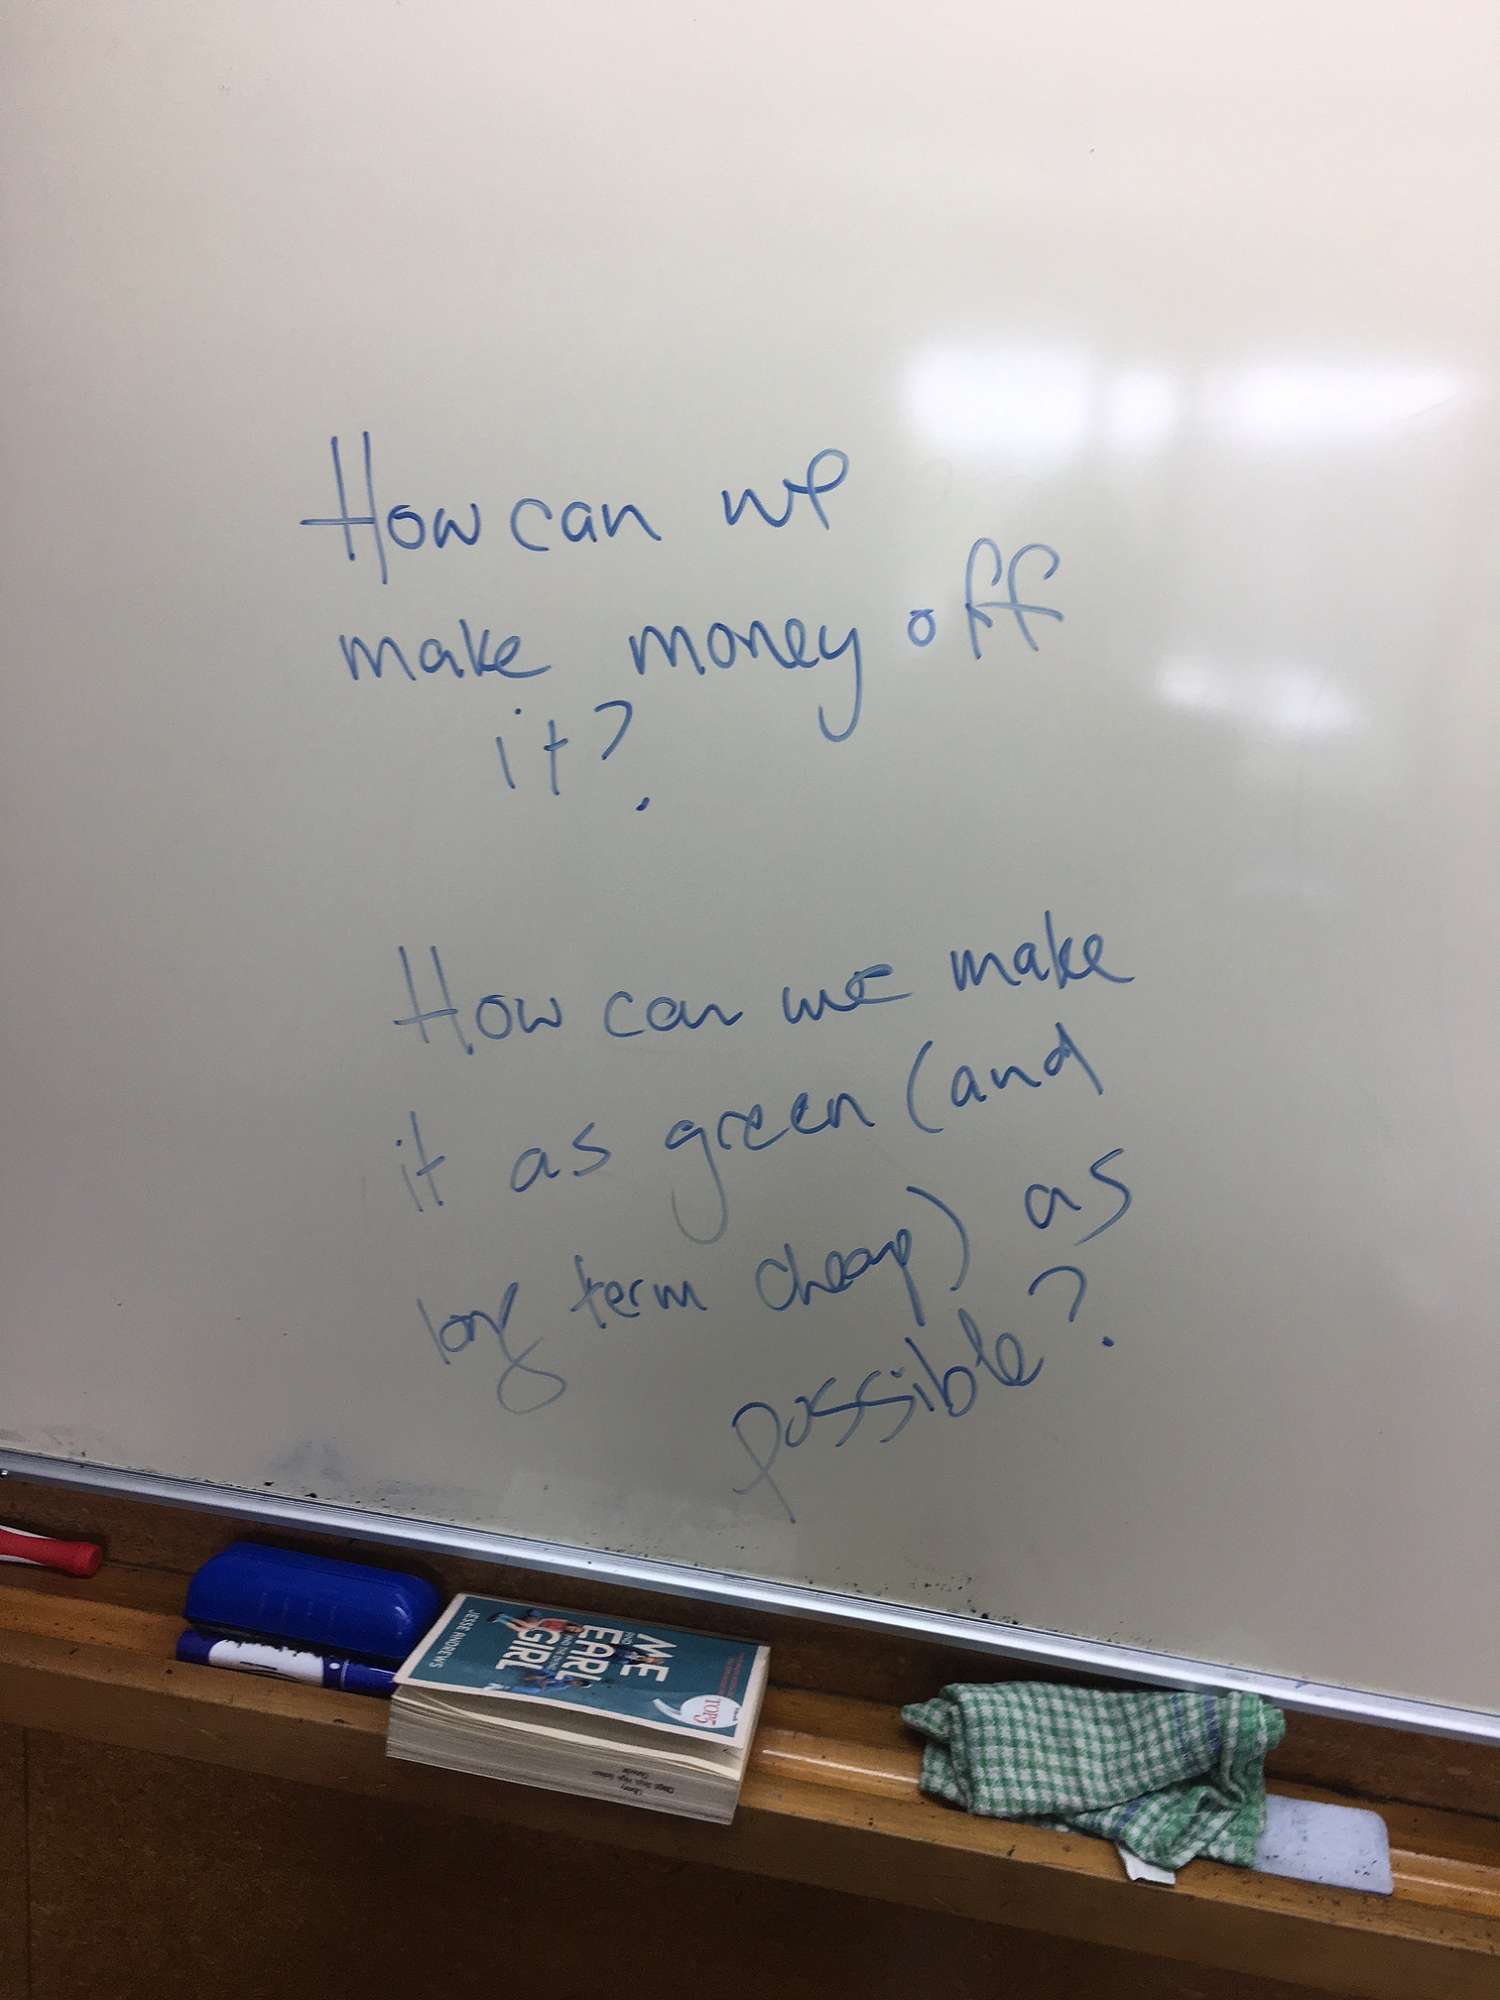 How can we
make money off
it?
How can we make
it as green (and
long term cheap) as
possible?
JESSE ANDREWS
ME
AND
EARL
AND THE DYING
GIRL
TOP 5